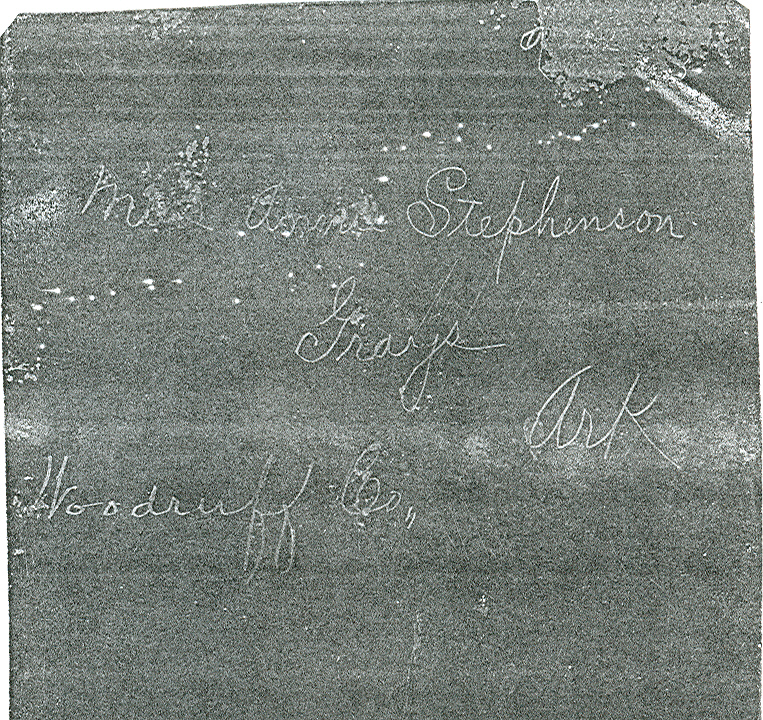 Miss Annie Stephenson
Grays
Ark
Woodruff Co,,